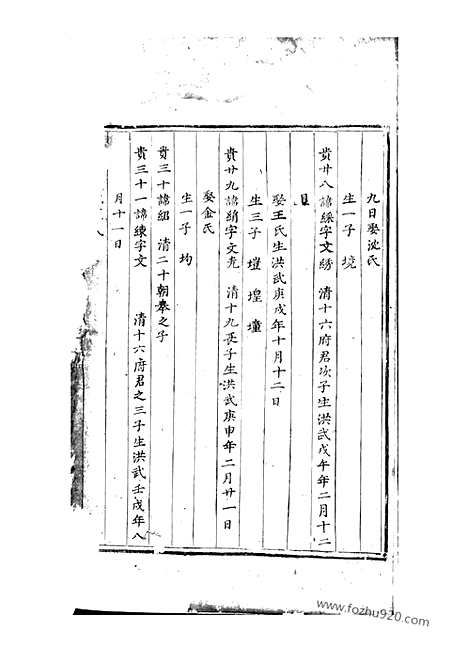 九日娶沈氏
生一子 境
貴廿八諱綵字文綉 清十六府君次子生洪武戊午年二月十二
日
娶王氏生洪武庚戌年十月十二日
生三子 塏 堭 墥
貴廿九諱綃字文堯 清十九長子生洪武庚申年二月廿一日
娶金氏
生一子 均
貴三十諱紹 清二十朝奉之子
貴三十一諱練字文 清十六府君之三子生洪武壬戌年八
月十一日
www.fozhu920.com